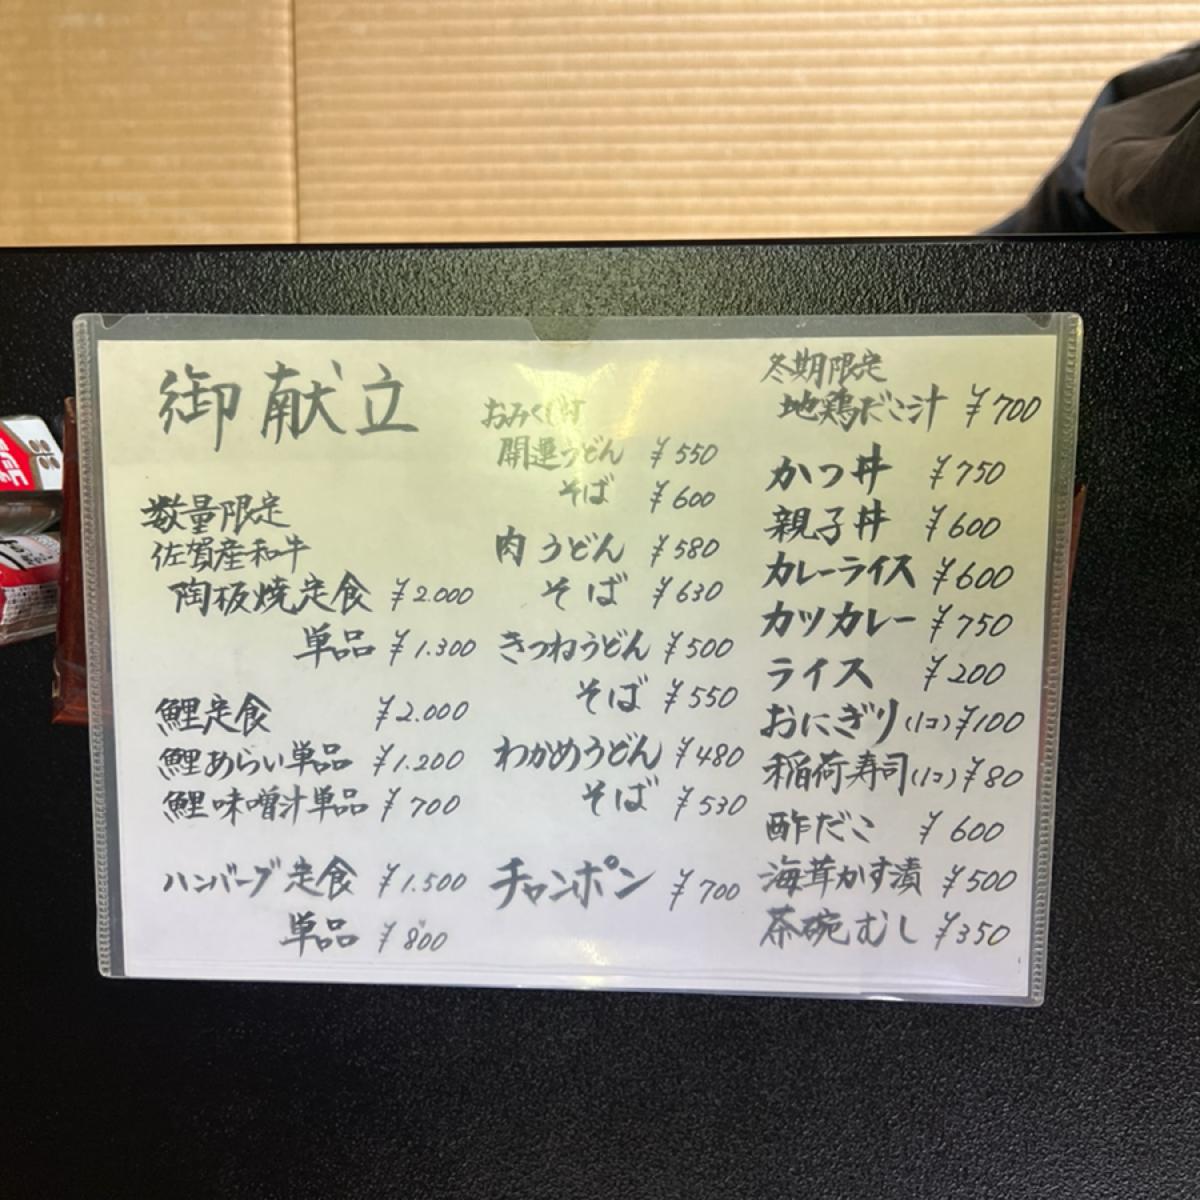 御献立
数量限定
佐賀産和牛
陶板焼定食 ¥2.000
単品 ¥1.300
鯉定食 ¥2.000
鯉あらい単品 ¥1.200
鯉味噌汁単品 ¥700
ハンバーグ定食 ¥1.500
単品 ¥800
おみくじ付
開運うどん ¥550
そば ¥600
肉うどん ¥580
そば ¥630
きつねうどん ¥500
そば ¥550
わかめうどん ¥480
そば ¥530
チャンポン ¥700
冬期限定
地鶏だご汁 ¥700
かつ丼 ¥750
親子丼 ¥600
カレーライス ¥600
カツカレー ¥750
ライス ¥200
おにぎり(1コ) ¥100
稲荷寿司(1コ) ¥80
酢だこ ¥600
海茸かす漬 ¥500
茶碗むし ¥350